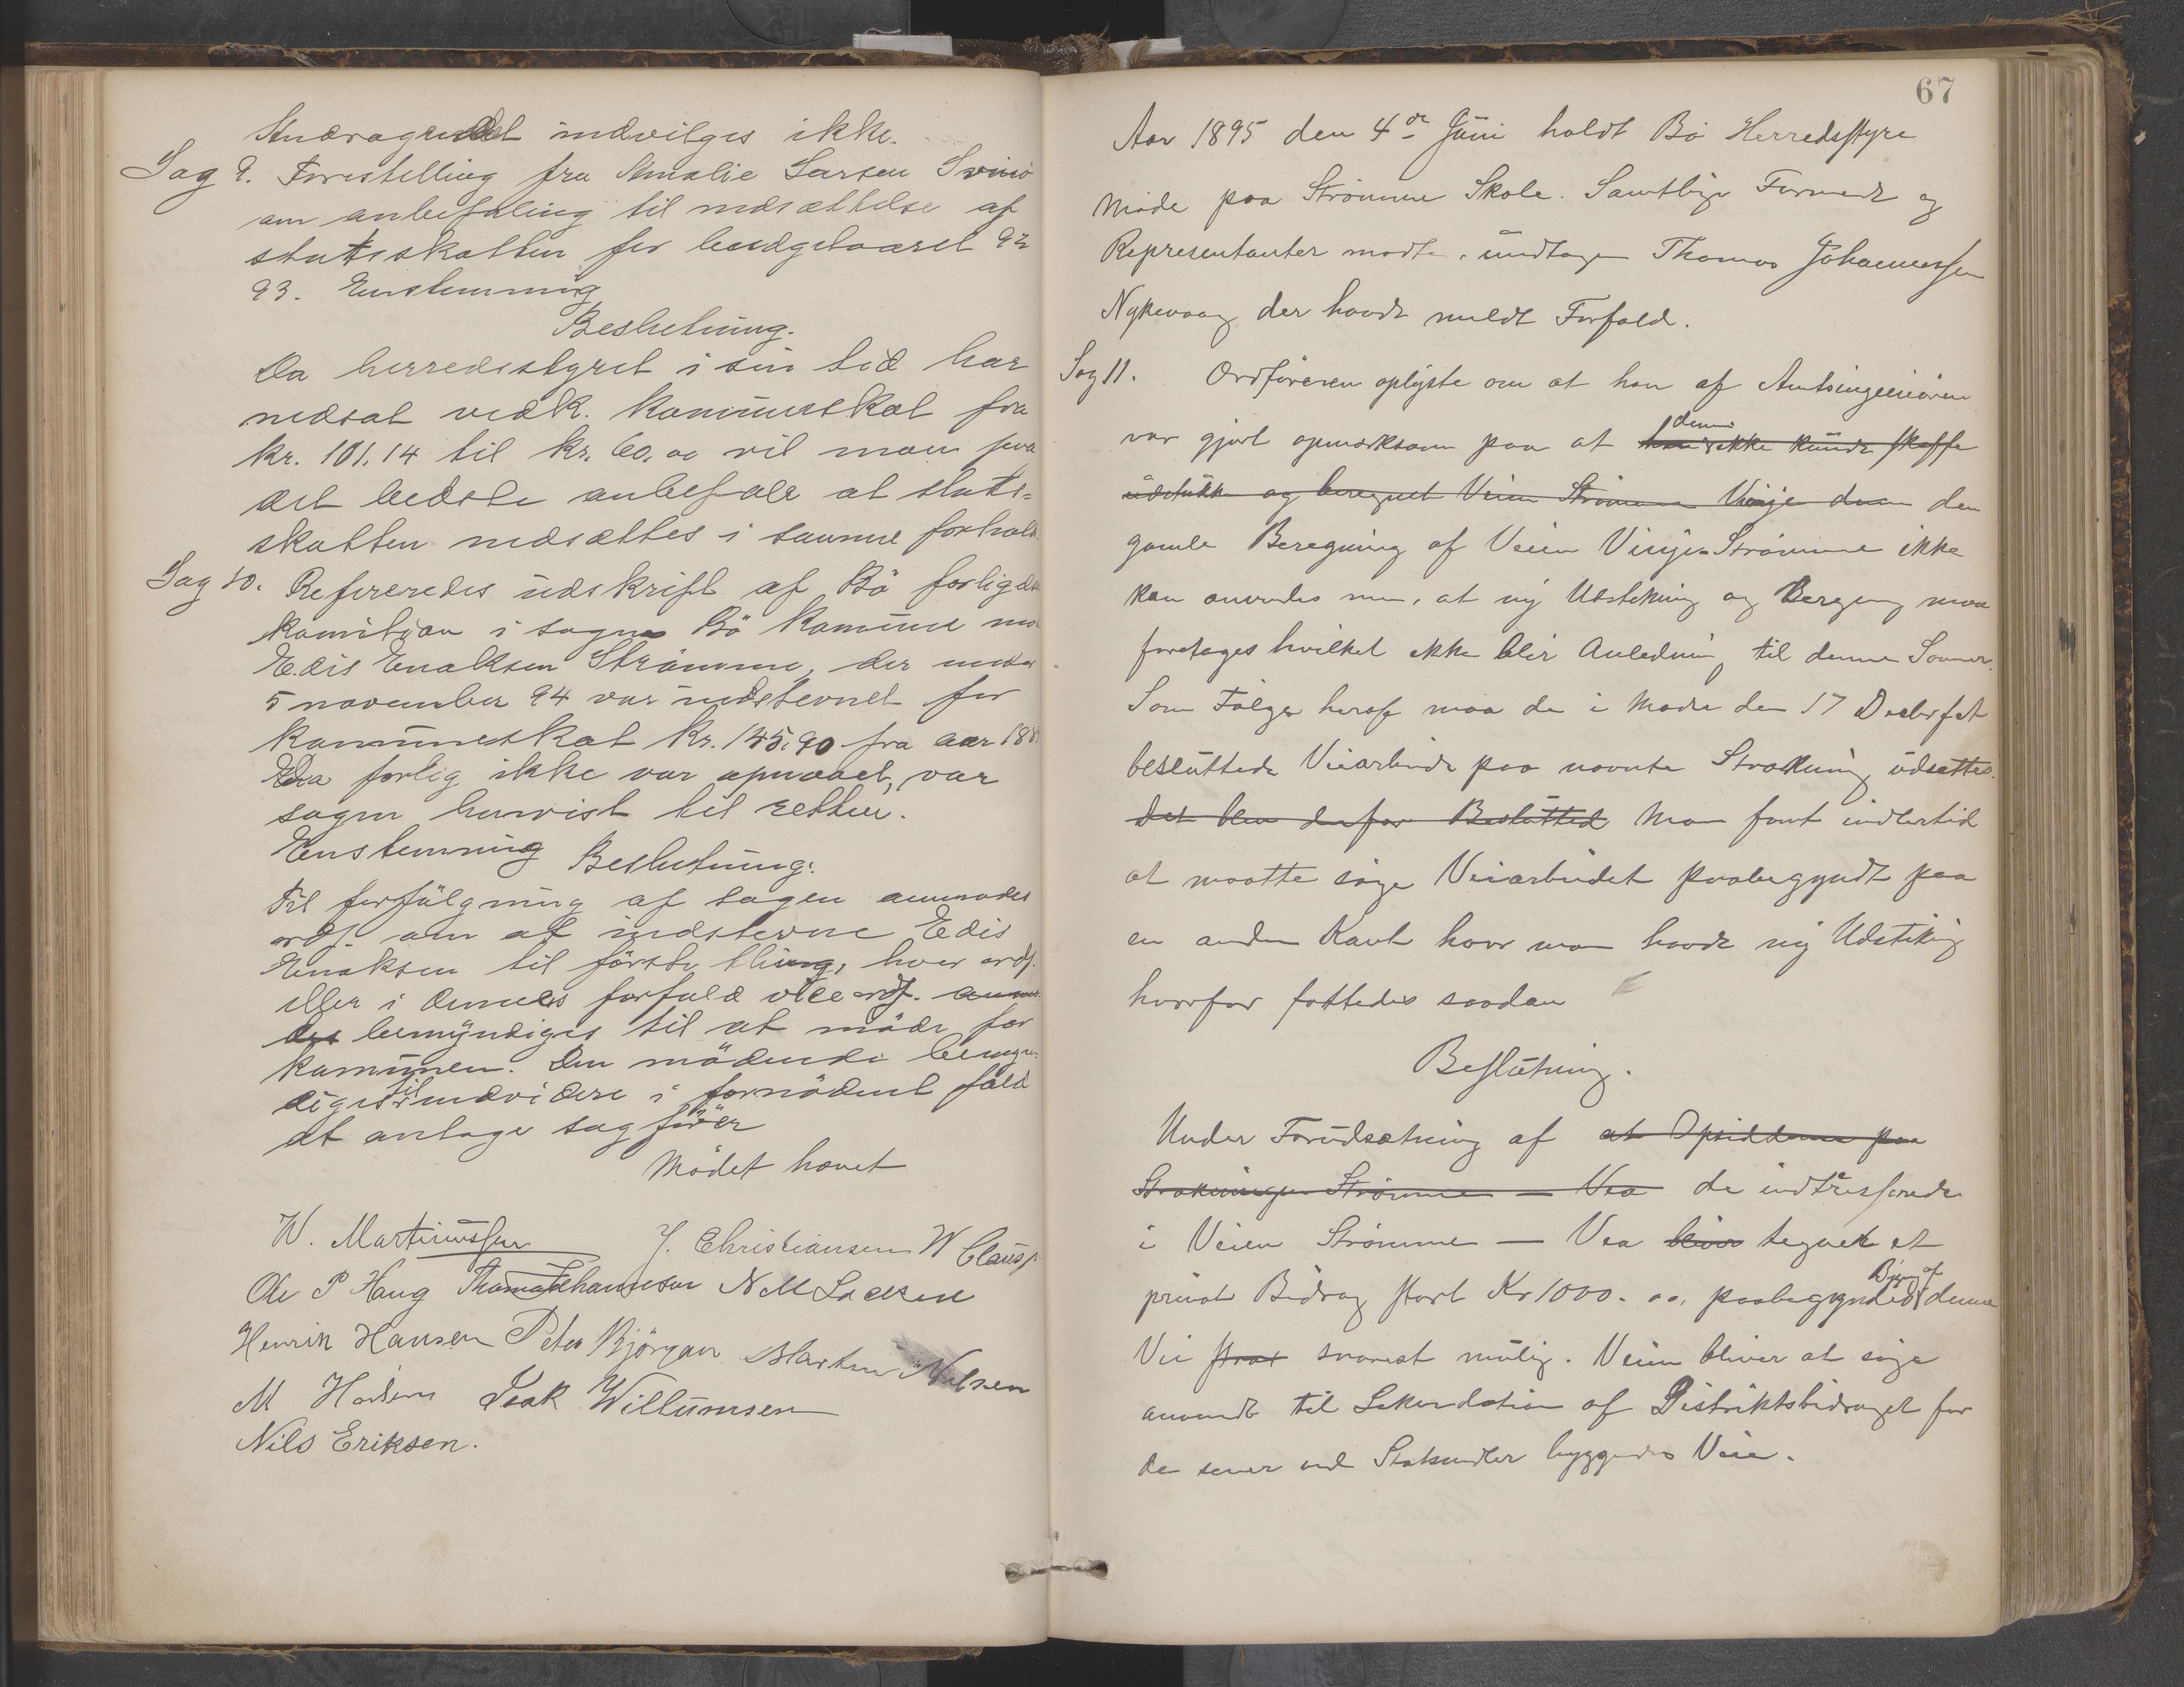 Andragendet indvilges ikke.
Sag 9. Forestilling fra Amalie Larsen Svinö
om anbefaling til nedsættelse af
statsskatten for budgetaaret 92
93. Enstemmig
Beslutning.
Da herredsstyret i sin tid har
nedsat vedk. kommuneskat fra
kr. 101.14 til kr. 60.00 vil man paa
det bedste anbefale at stats-
skatten nedsættes i samme forhold.
Sag 10. Refereredes udskrift af Bö forligds
komisjon i sagen Bö kommune mod
Edis Enoksen Strömme, der under
5 november 94 var indstevnet for
kommuneskat kr. 145.90 fra aar
Da forlig ikke var opnaaet, var
sagen henvist til retten.
Enstemmig Beslutning:
Til forfölgning af sagen anmodes
ordf. om at indstevne Edis
Enoksen til förste thing, hvor ordf.
eller i dennes forfald viceordf.
des bemyndiges til at möde for
kommunen. Den mödende bemyn-
diges til endvidere i fornödent fald
at antage sagförer
Mödet hævet
W. Martinussen J. Christiansen W Claus
Ole P Haug Thomas Johannesen N M
Henrik Hansen Peter Björgan Marten Nilsen
M Isak Willumsen
Nils Eriksen.
67
Aar 1895 den 4de Juni holdt Bö Herredsstyre
Möde paa Strömme Skole. Samtlige Formænd og
Representanter mødte, undtagen Thomas Johannessen
Nykvaag der havde meldt Forfald.
Sag 11. Ordföreren oplyste om at han af Amtsingeniören
var gjort opmærksom paa at denne ikke kunde skaffe
udstukket og beregnet Veien Strömme Vinje den
gamle Beregning af Veien Vinje-Strömme ikke
kan anvendes men, at ny Udstikning og Beregning maa
foretages hvilket ikke blir Anledning til denne Sommer.
Som Fölge heraf maa de i Möde den 17 Decbr f.at
besluttede Veiarbeide paa nævnte Strækning udsættes.
Det blev derfor Beslutted Man fant imidlertid
at maatte söge Veiarbeidet paabegyndt paa
en anden Kant hvor man havde ny Udstikning
hvorfor fattedes saadan
Beslutning.
Under Forudsætning af at Opsidderne paa
Strækningen Strömme — Vea de indtresserede
i Veien Strömme — Vea bliver tegnet et
privat Bidrag stort Kr 1000.00, paabegyndes Bygning af denne
Vei strax snarest mulig. Veien bliver at söge
anvendt til Likvidation af Distriktsbidraget for
de senere ved Statsmidler byggede Veie.